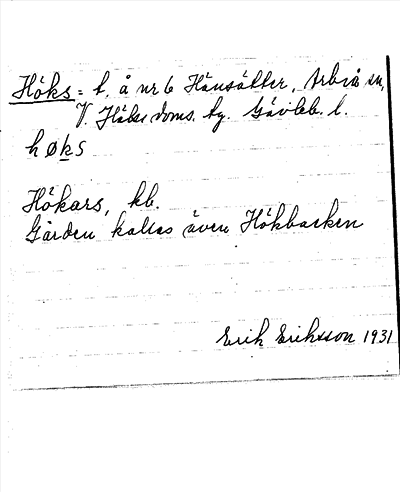 Höks = t. å nr 6 Hänsätter, Arbrå sn,
V. Hälsе doms. tg. Gävleb. l.
høks
Hökars, kb.
Gården kallas även Hökbacken
Erik Eriksson 1931